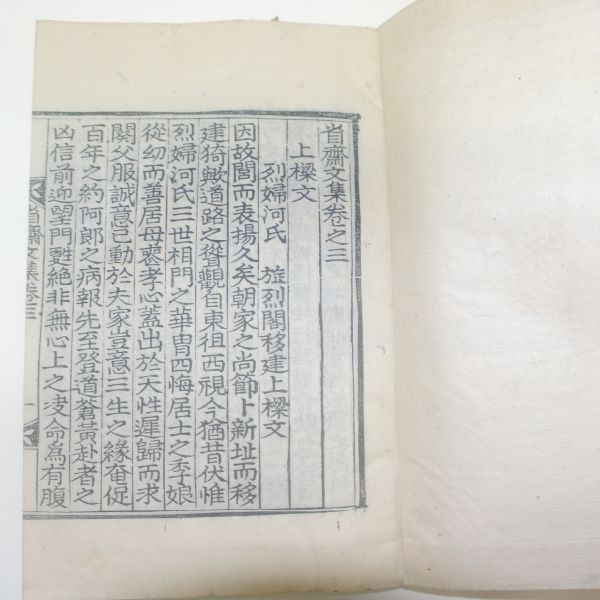 省齋文集卷之三
上樑文
烈婦河氏 旌烈閣移建上樑文
因故閭而表揚久矣朝家之尚節卜新址而移
建猗歟道路之聳觀自東徂西視今猶昔伏惟
烈婦河氏三世相門之華冑四悔居士之季娘
從幼而善居母喪孝心蓋出於天性遲歸而求
闕父服誠意已動於夫家豈意三生之緣奄促
百年之約阿郎之病報先至登道蒼黃赴者之
凶信前迎望門甦絶非無心上之決命爲有腹
省齋文集卷三
一